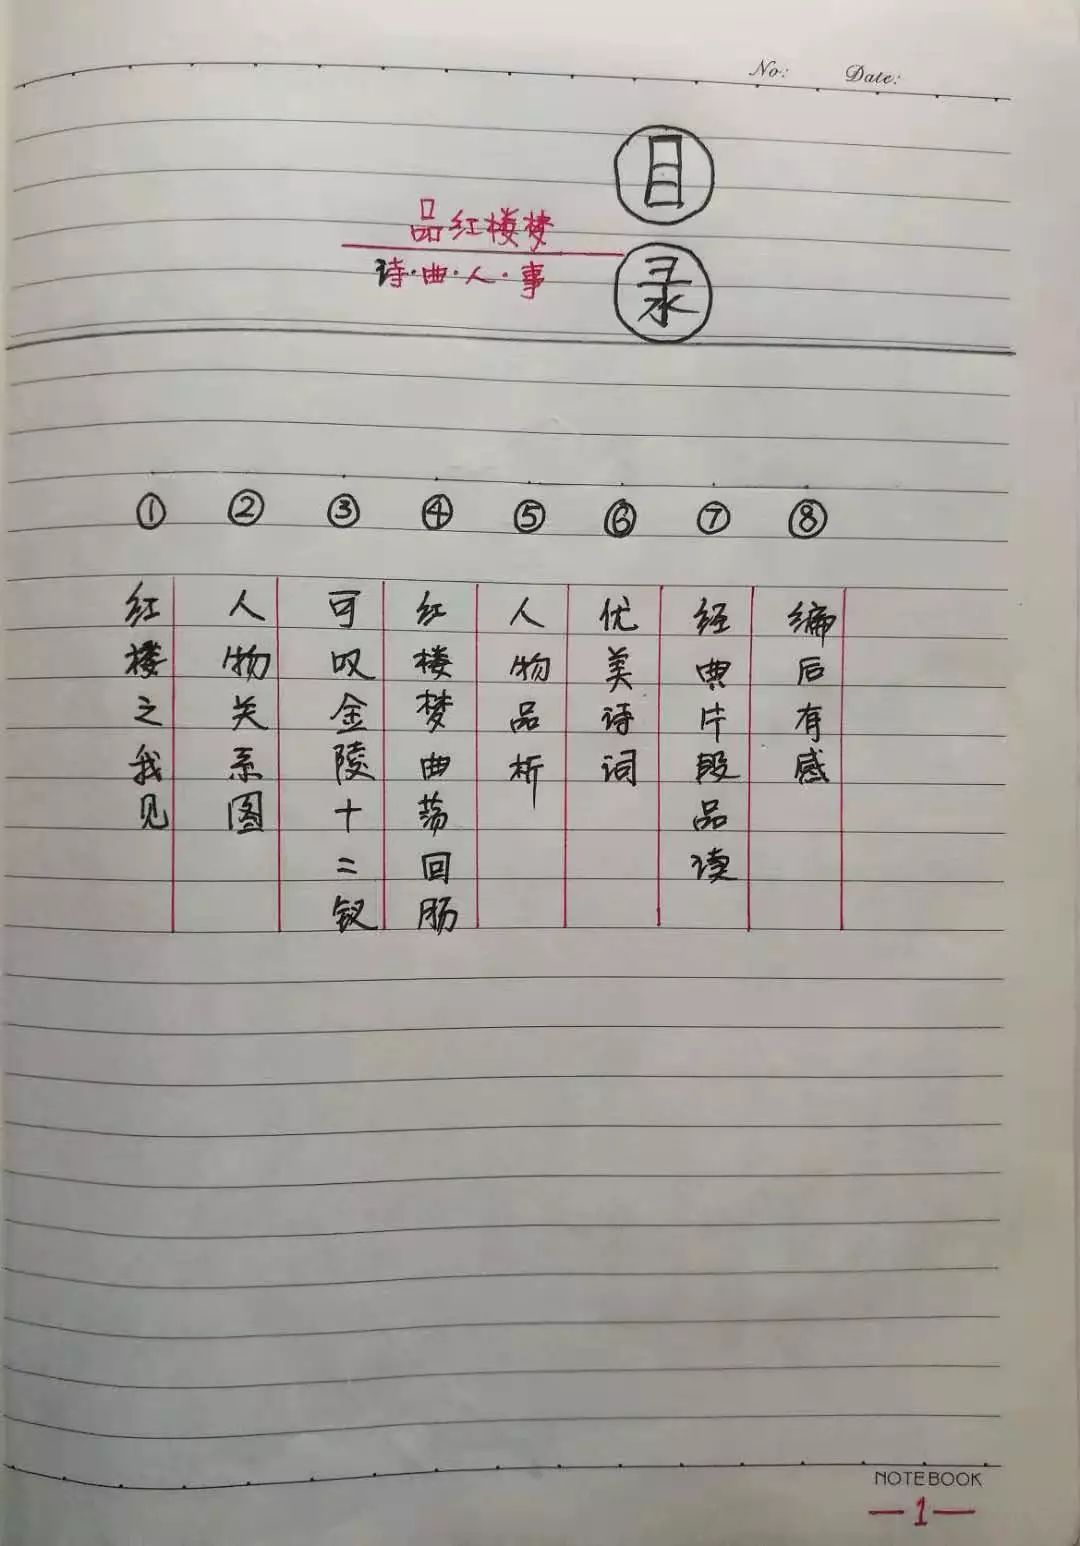 No: Date:
目录
品红楼梦
诗·曲·人·事
① 红楼之我见
② 人物关系图
③ 可叹金陵十二钗
④ 红楼梦曲荡回肠
⑤ 人物品析
⑥ 优美诗词
⑦ 经典片段品读
⑧ 编后有感
NOTEBOOK
—1—